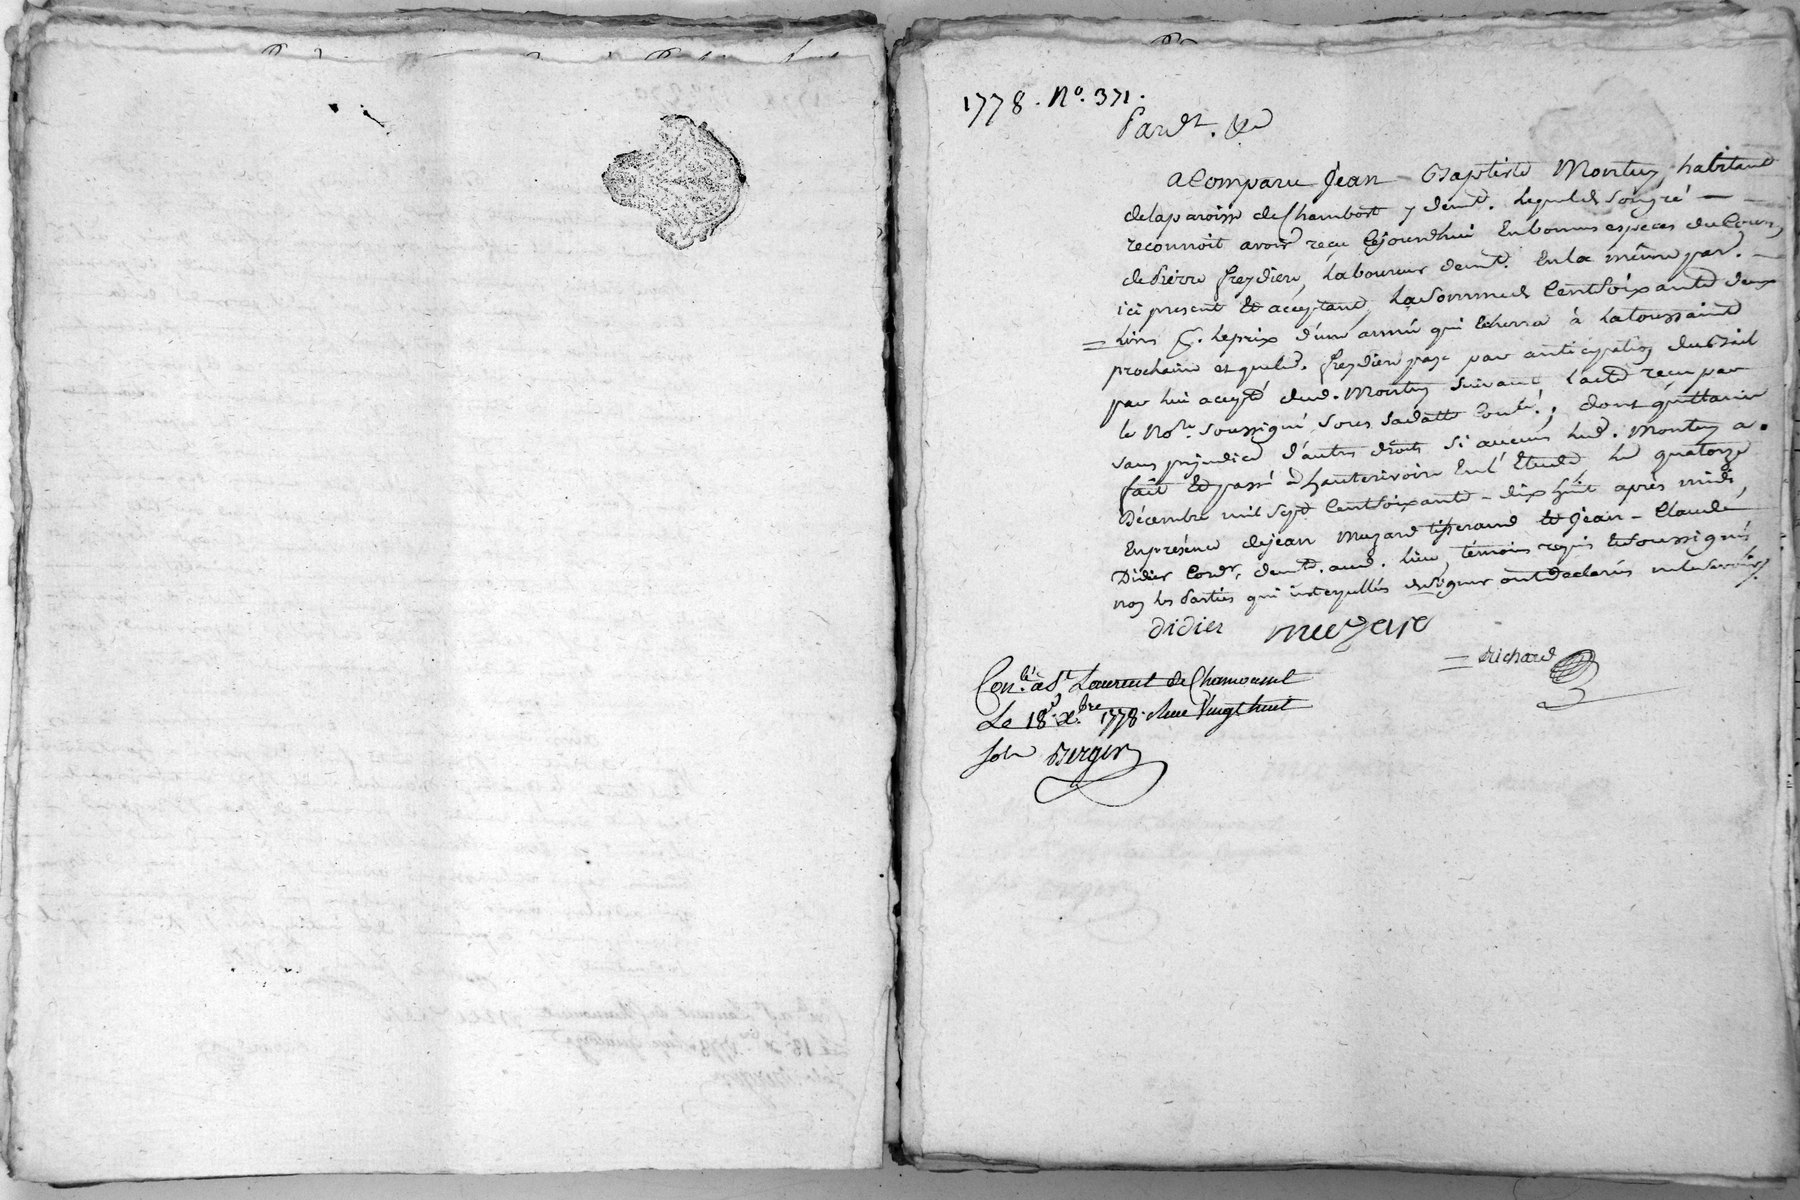 1778. No. 371.
Pardt. &a
a Comparu Jean Baptiste Montuy habitant
de la paroisse de Chambost y demt. lequel de son gré
reconnoit avoir reçu cejourdhui en bonnes especes du Cours
de Pierre freydiere, laboureur demt. en la même par.
ici present et acceptant, la somme de Cent soixante deux
livres pr. le prix d'une année qui echerra à la toussaint
prochaine et que led. freydiere paye par anticipation du bail
par lui accepté dud. Montuy suivant l'acte reçu par
le Nore. soussigné sous sa datte Conlé.; dont quittance
sans prejudice d'autres droits si aucuns led. Montuy a.
fait et passé à hauterivoire en l'Etude le quatorze
Décembre mil sept Cent soixante-dix huit après midi,
En présence de jean Muzard tisserand et jean-Claude
Didier Cordr. demt. aud. lieu, témoins requis et soussignés
non les Parties qui interpellées de signer ont declarés ne le savoir
didier muzard
Richard
Conlé. à St. Laurent de Chamousset
Le 18 Xbre 1778. Reçu Vingt huit
sols Berger